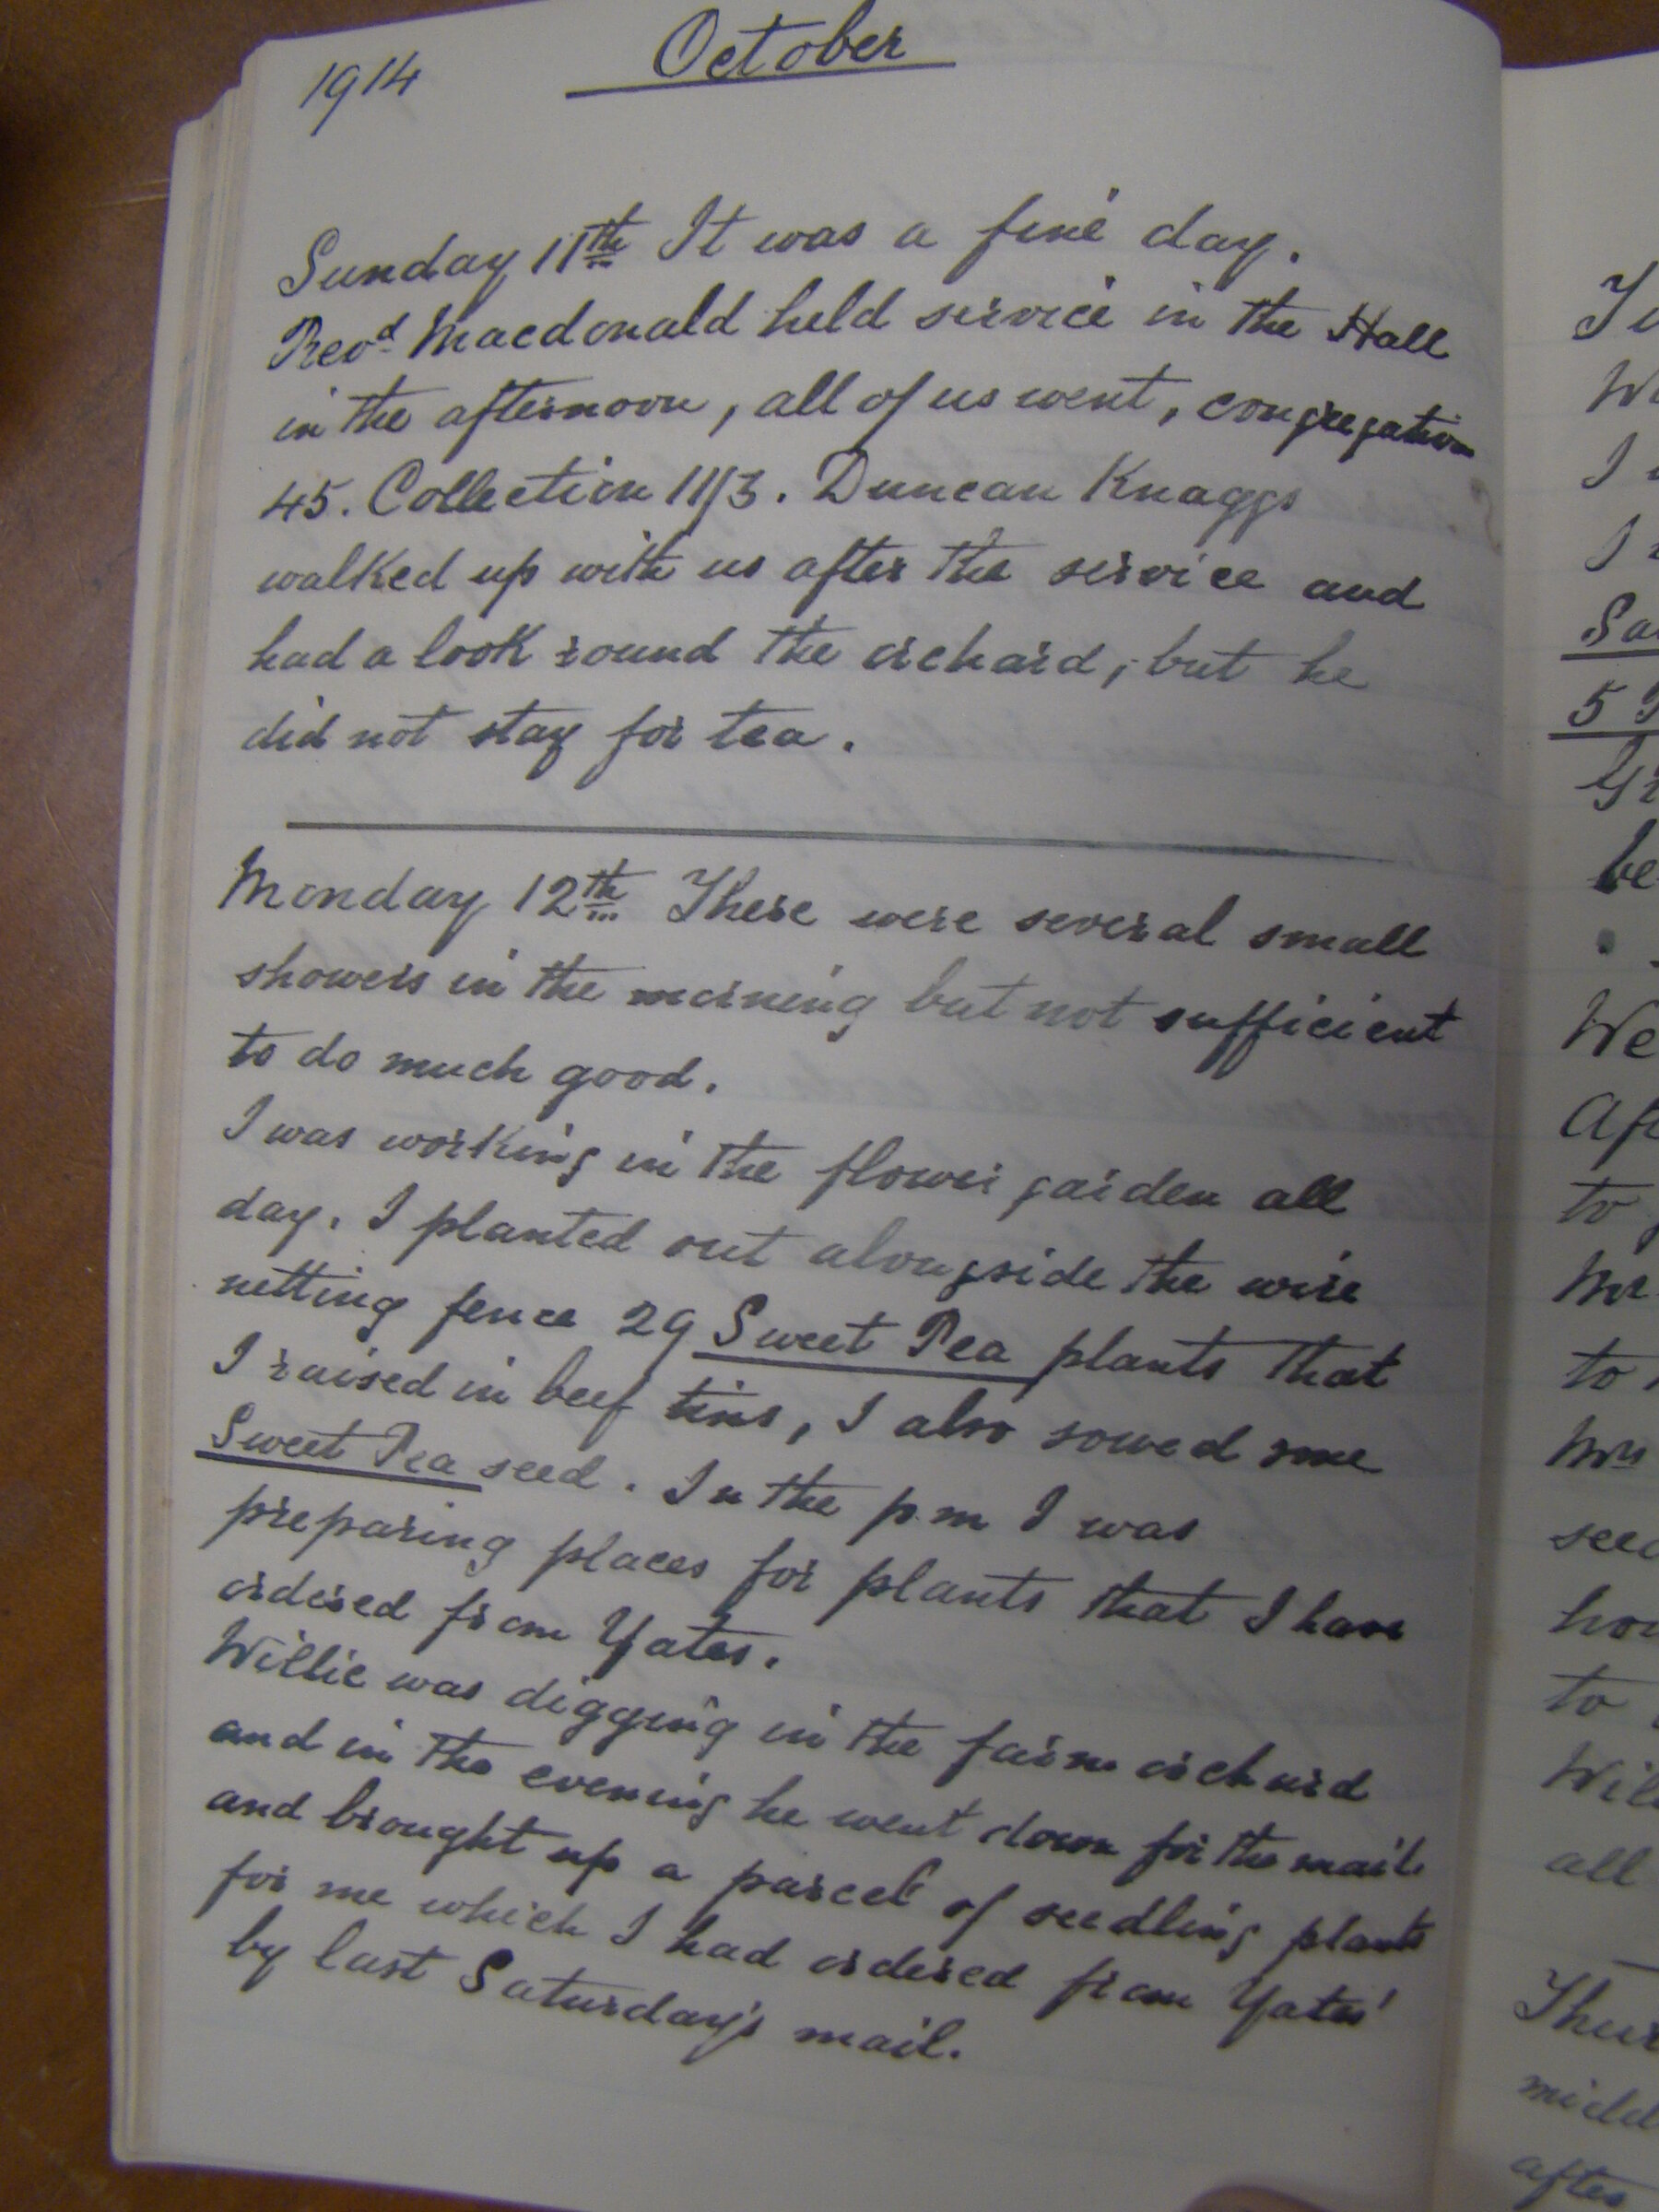 1914
October
Sunday 11th It was a fine day.
Revd Macdonald held service in the Hall
in the afternoon, all of us went, congregation
45. Collection 11/3. Duncan Knaggs
walked up with us after the service and
had a look round the orchard, but he
did not stay for tea.
Monday 12th There were several small
showers in the morning but not sufficient
to do much good.
I was working in the flower garden all
day. I planted out alongside the wire
netting fence 29 Sweet Pea plants that
I raised in beef tins, I also sowed some
Sweet Pea seed. In the p.m I was
preparing places for plants that I have
ordered from Yates.
Willie was digging in the farm orchard
and in the evening he went down for the mail
and brought up a parcel of seedling plants
for me which I had ordered from Yates'
by last Saturday's mail.
I
I
Sa
5
be
We
Af
to
Mr
to
Mrs
seed
to
Wil
all
Thur
midd
after